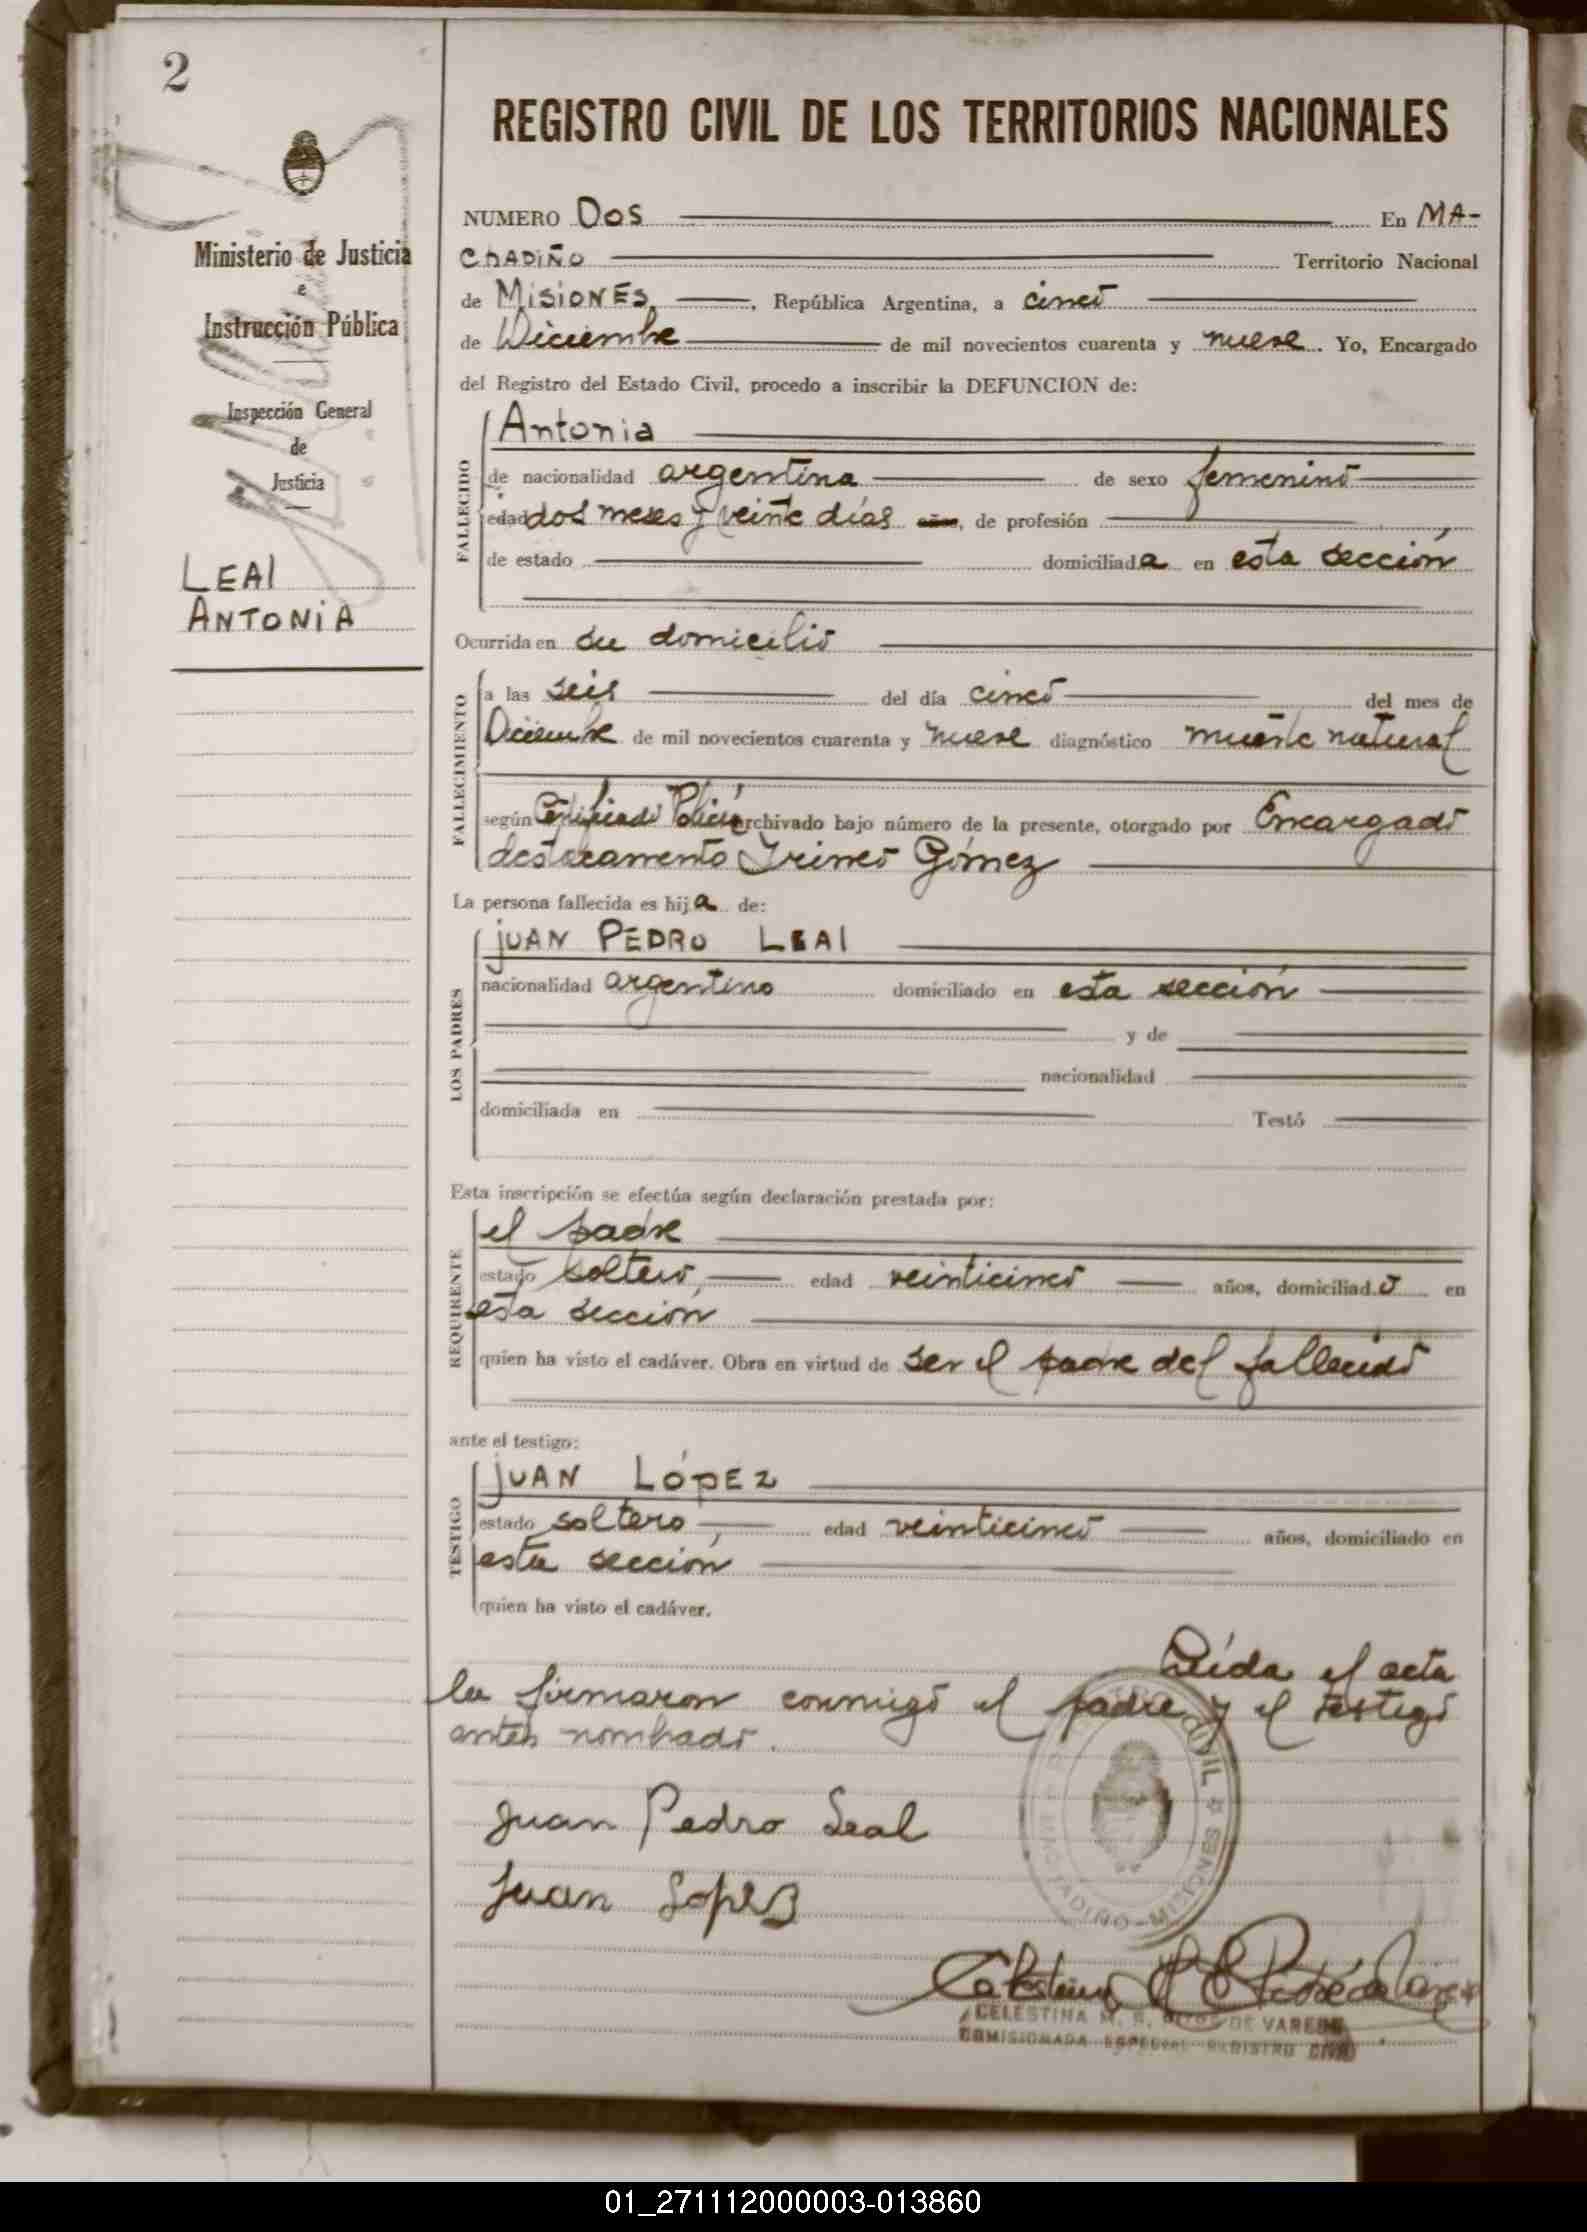 2
REGISTRO CIVIL DE LOS TERRITORIOS NACIONALES
Ministerio de Justicia
e
Instrucción Pública
Inspección General
de
Justicia
LEAl
ANTONiA
NUMERO Dos En MA-
CHADIÑO Territorio Nacional
de MisiONES, República Argentina, a cinco
de Diciembre de mil novecientos cuarenta y nueve. Yo, Encargado
del Registro del Estado Civil, procedo a inscribir la DEFUNCION de:
FALLECIDO
Antonia
de nacionalidad argentina de sexo femenino
edad dos meses y veinte días años, de profesión
de estado domiciliada en esta sección
Ocurrida en su domicilio
FALLECIMIENTO
a las seis del día cinco del mes de
Diciembre de mil novecientos cuarenta y nueve diagnóstico muerte natural
según Certificado Policía archivado bajo número de la presente, otorgado por Encargado
destacamento Irineo Gómez
La persona fallecida es hija de:
LOS PADRES
jUAN PEDRO LEAl
nacionalidad argentino domiciliado en esta sección
y de
nacionalidad
domiciliada en Testó
Esta inscripción se efectúa según declaración prestada por:
REQUIRENTE
el padre
estado soltero, edad veinticinco años, domiciliado en
esta sección
quien ha visto el cadáver. Obra en virtud de ser el padre del fallecido
ante el testigo:
TESTIGO
jUAN LÓPEZ
estado soltero, edad veinticinco años, domiciliado en
esta sección
quien ha visto el cadáver.
Leída el acta
la firmaron conmigo el padre y el testigo
antes nombrado.
Juan Pedro Leal
Juan Lopez
CIVIL ☆ MISIONES
CELESTINA M. R. DE VARE
COMISIONADA ESPECIAL REGISTRO CIVIL
01_271112000003-013860